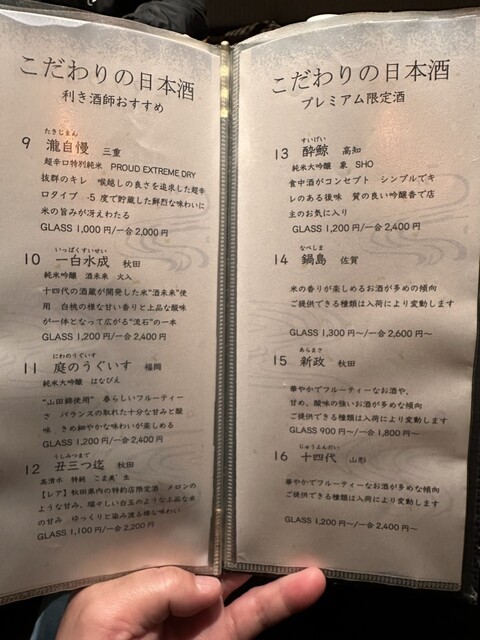 こだわりの日本酒
利き酒師おすすめ
たきじまん
9 瀧自慢 三重
超辛口特別純米 PROUD EXTREME DRY
抜群のキレ 喉越しの良さを追求した超辛
口タイプ -5度で貯蔵した鮮烈な味わいに
米の旨みが冴えわたる
GLASS 1,000円/一合 2,000円
いっぱくすいせい
10 一白水成 秋田
純米吟醸 酒未来 火入
十四代の酒蔵が開発した米"酒未来"使
用 白桃の様な甘い香りと上品な酸味
が一体となって広がる"流石"の一本
GLASS 1,200円/一合 2,400円
にわのうぐいす
11 庭のうぐいす 福岡
純米大吟醸 はなびえ
"山田錦使用" 春らしいフルーティー
さ バランスの取れた十分な甘みと酸
味 きめ細やかな味わいが楽しめる
GLASS 1,200円/一合 2,400円
うしみつまで
12 丑三つ迄 秋田
高清水 特純 生
【レア】秋田県内の特約店限定酒 メロンの
ような甘み、瑞々しい白玉のような上品な米
の甘み ゆっくりと染み渡る様な味わい
GLASS 1,100円/一合 2,200円
こだわりの日本酒
プレミアム限定酒
すいげい
13 酔鯨 高知
純米大吟醸 象 SHO
食中酒がコンセプト シンプルでキ
レのある後味 質の良い吟醸香で店
主のお気に入り
GLASS 1,200円/一合 2,400円
なべしま
14 鍋島 佐賀
米の香りが楽しめるお酒が多めの傾向
ご提供できる種類は入荷により変動します
GLASS 1,300円~/一合 2,600円~
あらまさ
15 新政 秋田
華やかでフルーティーなお酒や、
甘め、酸味の強いお酒が多めな傾向
ご提供できる種類は入荷により変動します
GLASS 900円~/一合 1,800円~
じゅうよんだい
16 十四代 山形
華やかでフルーティーなお酒が多めな傾向
ご提供できる種類は入荷により変動します
GLASS 1,200円~/一合 2,400円~